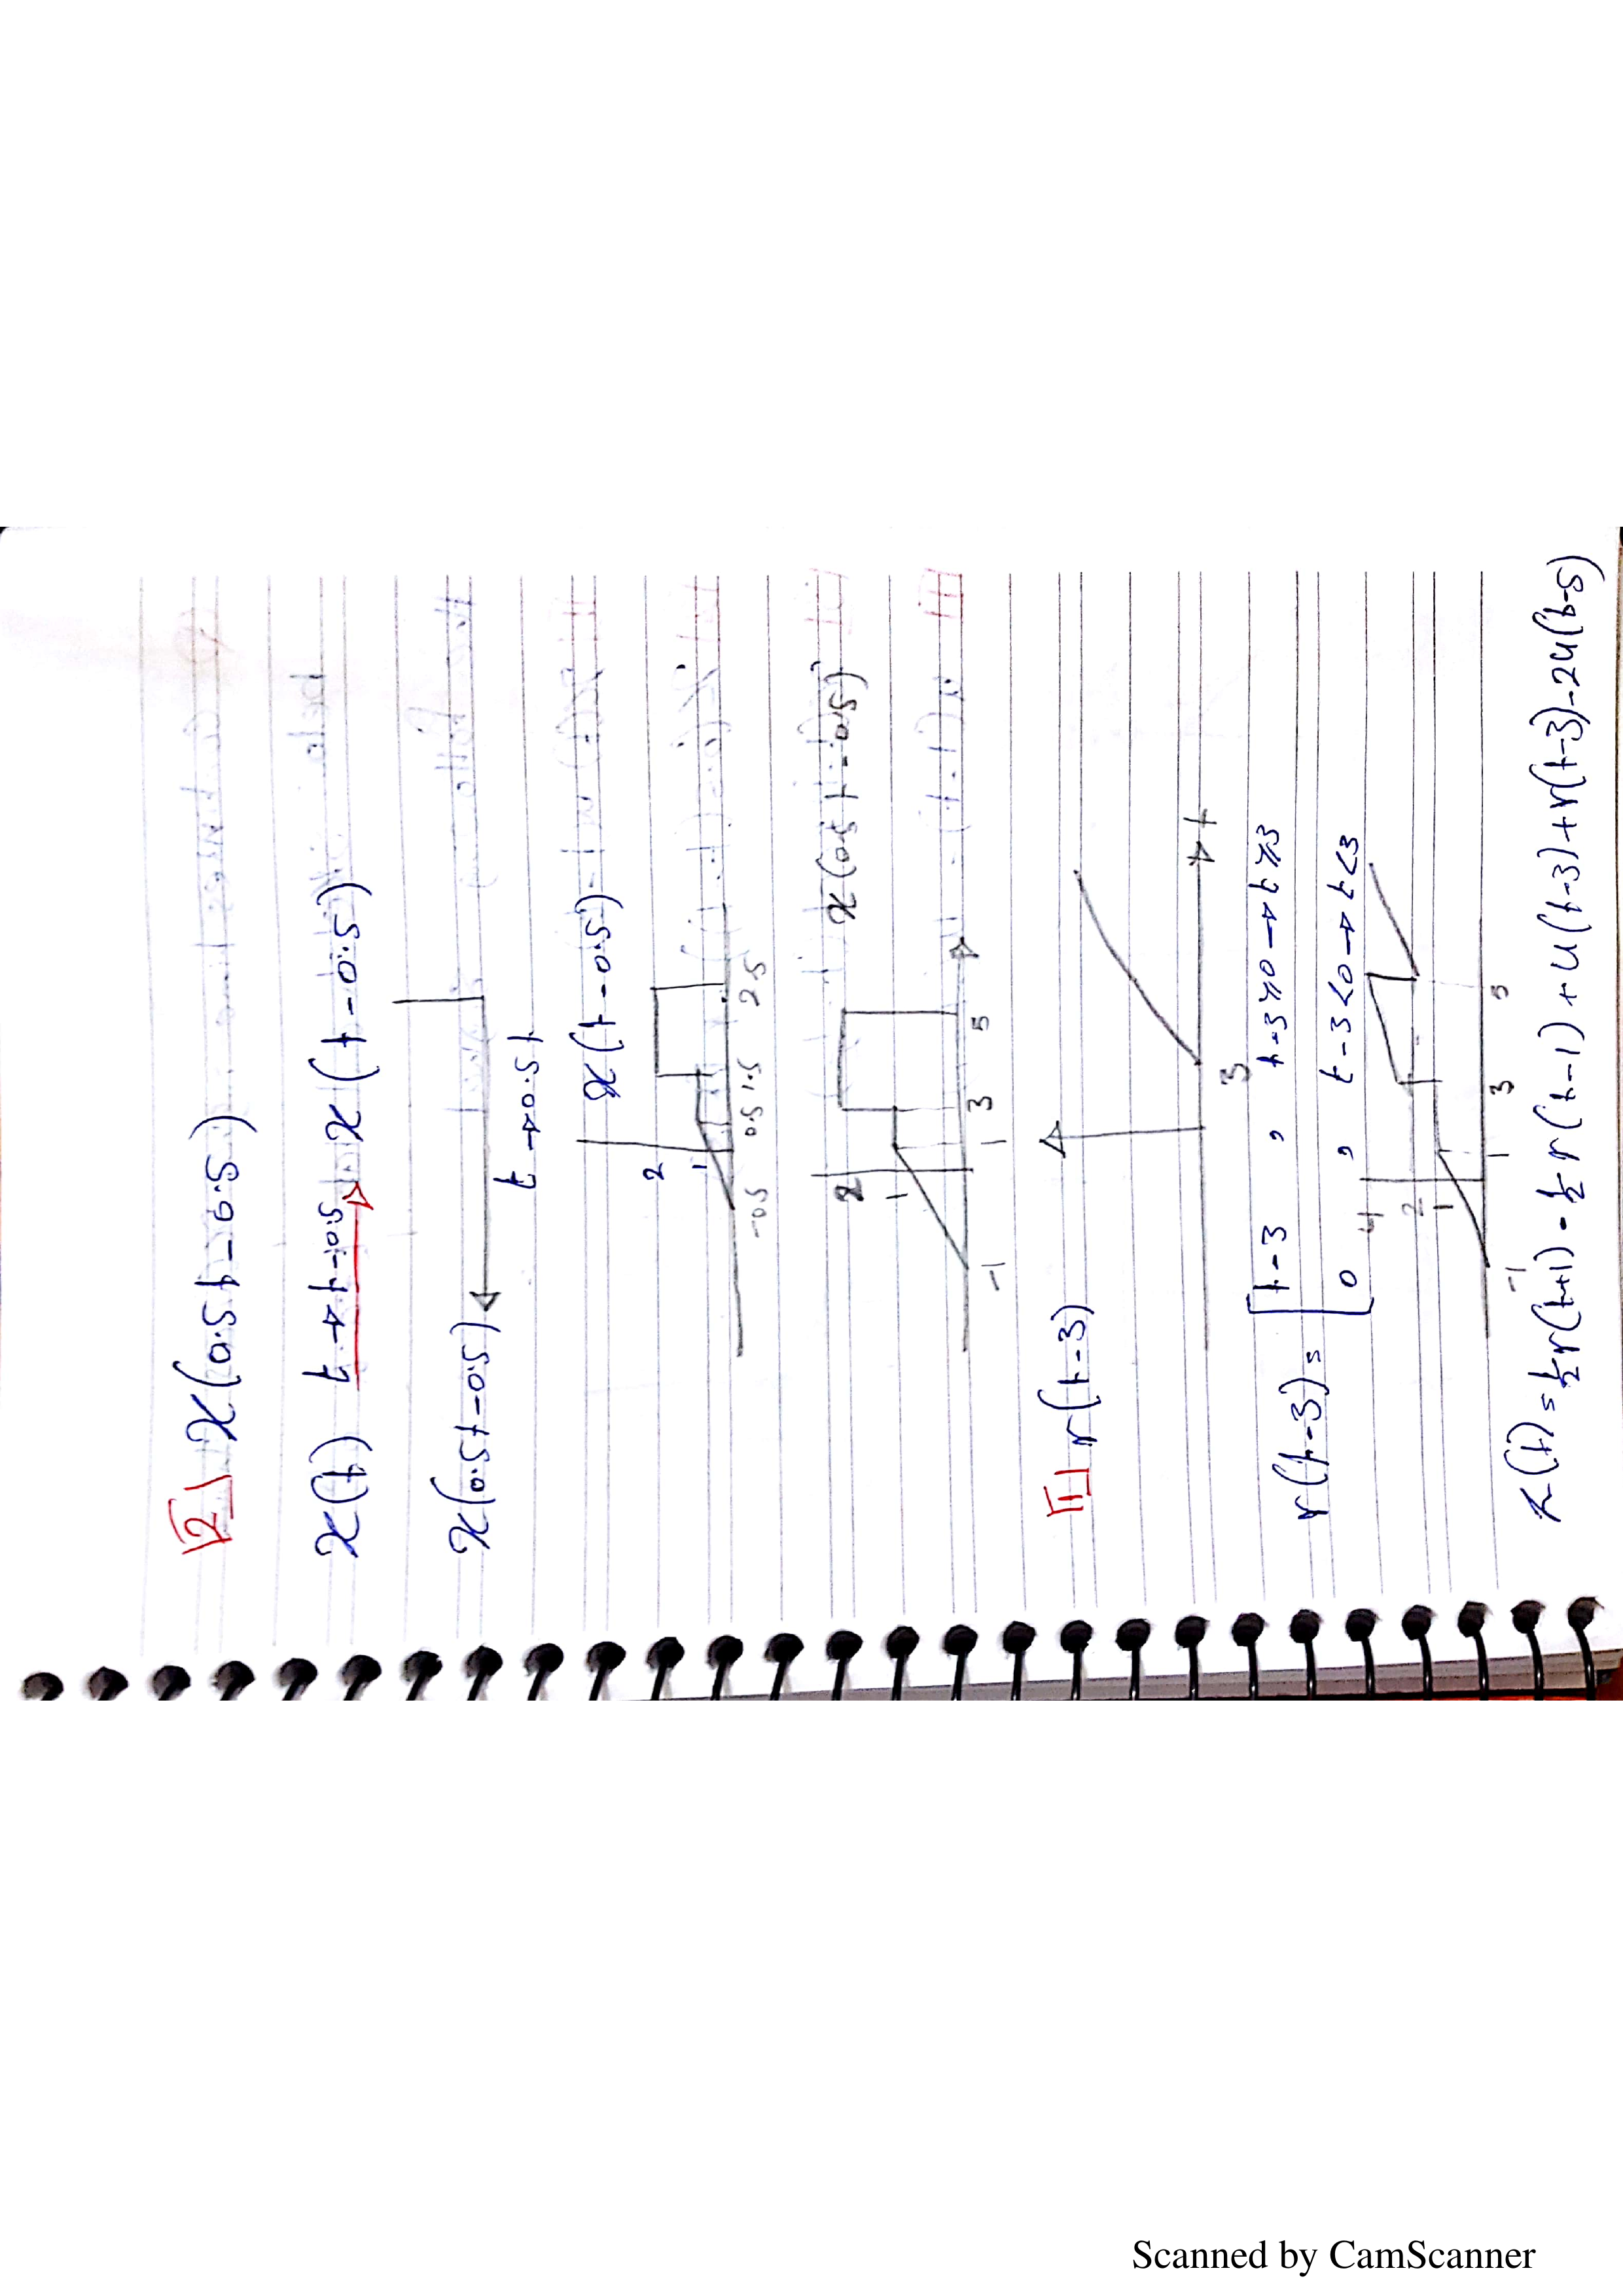 2 x(0.5t-0.5)
x(t) t→t-0.5 x(t-0.5)
x(0.5t-0.5)
t→0.5t
x(t-0.5)
2
1
-0.5 0.5 1.5 2.5
x(0.5t-0.5)
2
1
-1 1 3 5
1 r(t-3)
t
3
r(t-3) = [ t-3 , t-3≥0→t≥3
0 , t-3<0→t<3
4
2
1
-1 1 3 5
x(t) = 1/2 r(t+1) - 1/2 r(t-1) + u(t-3) + r(t-3) - 2u(t-5)
Scanned by CamScanner